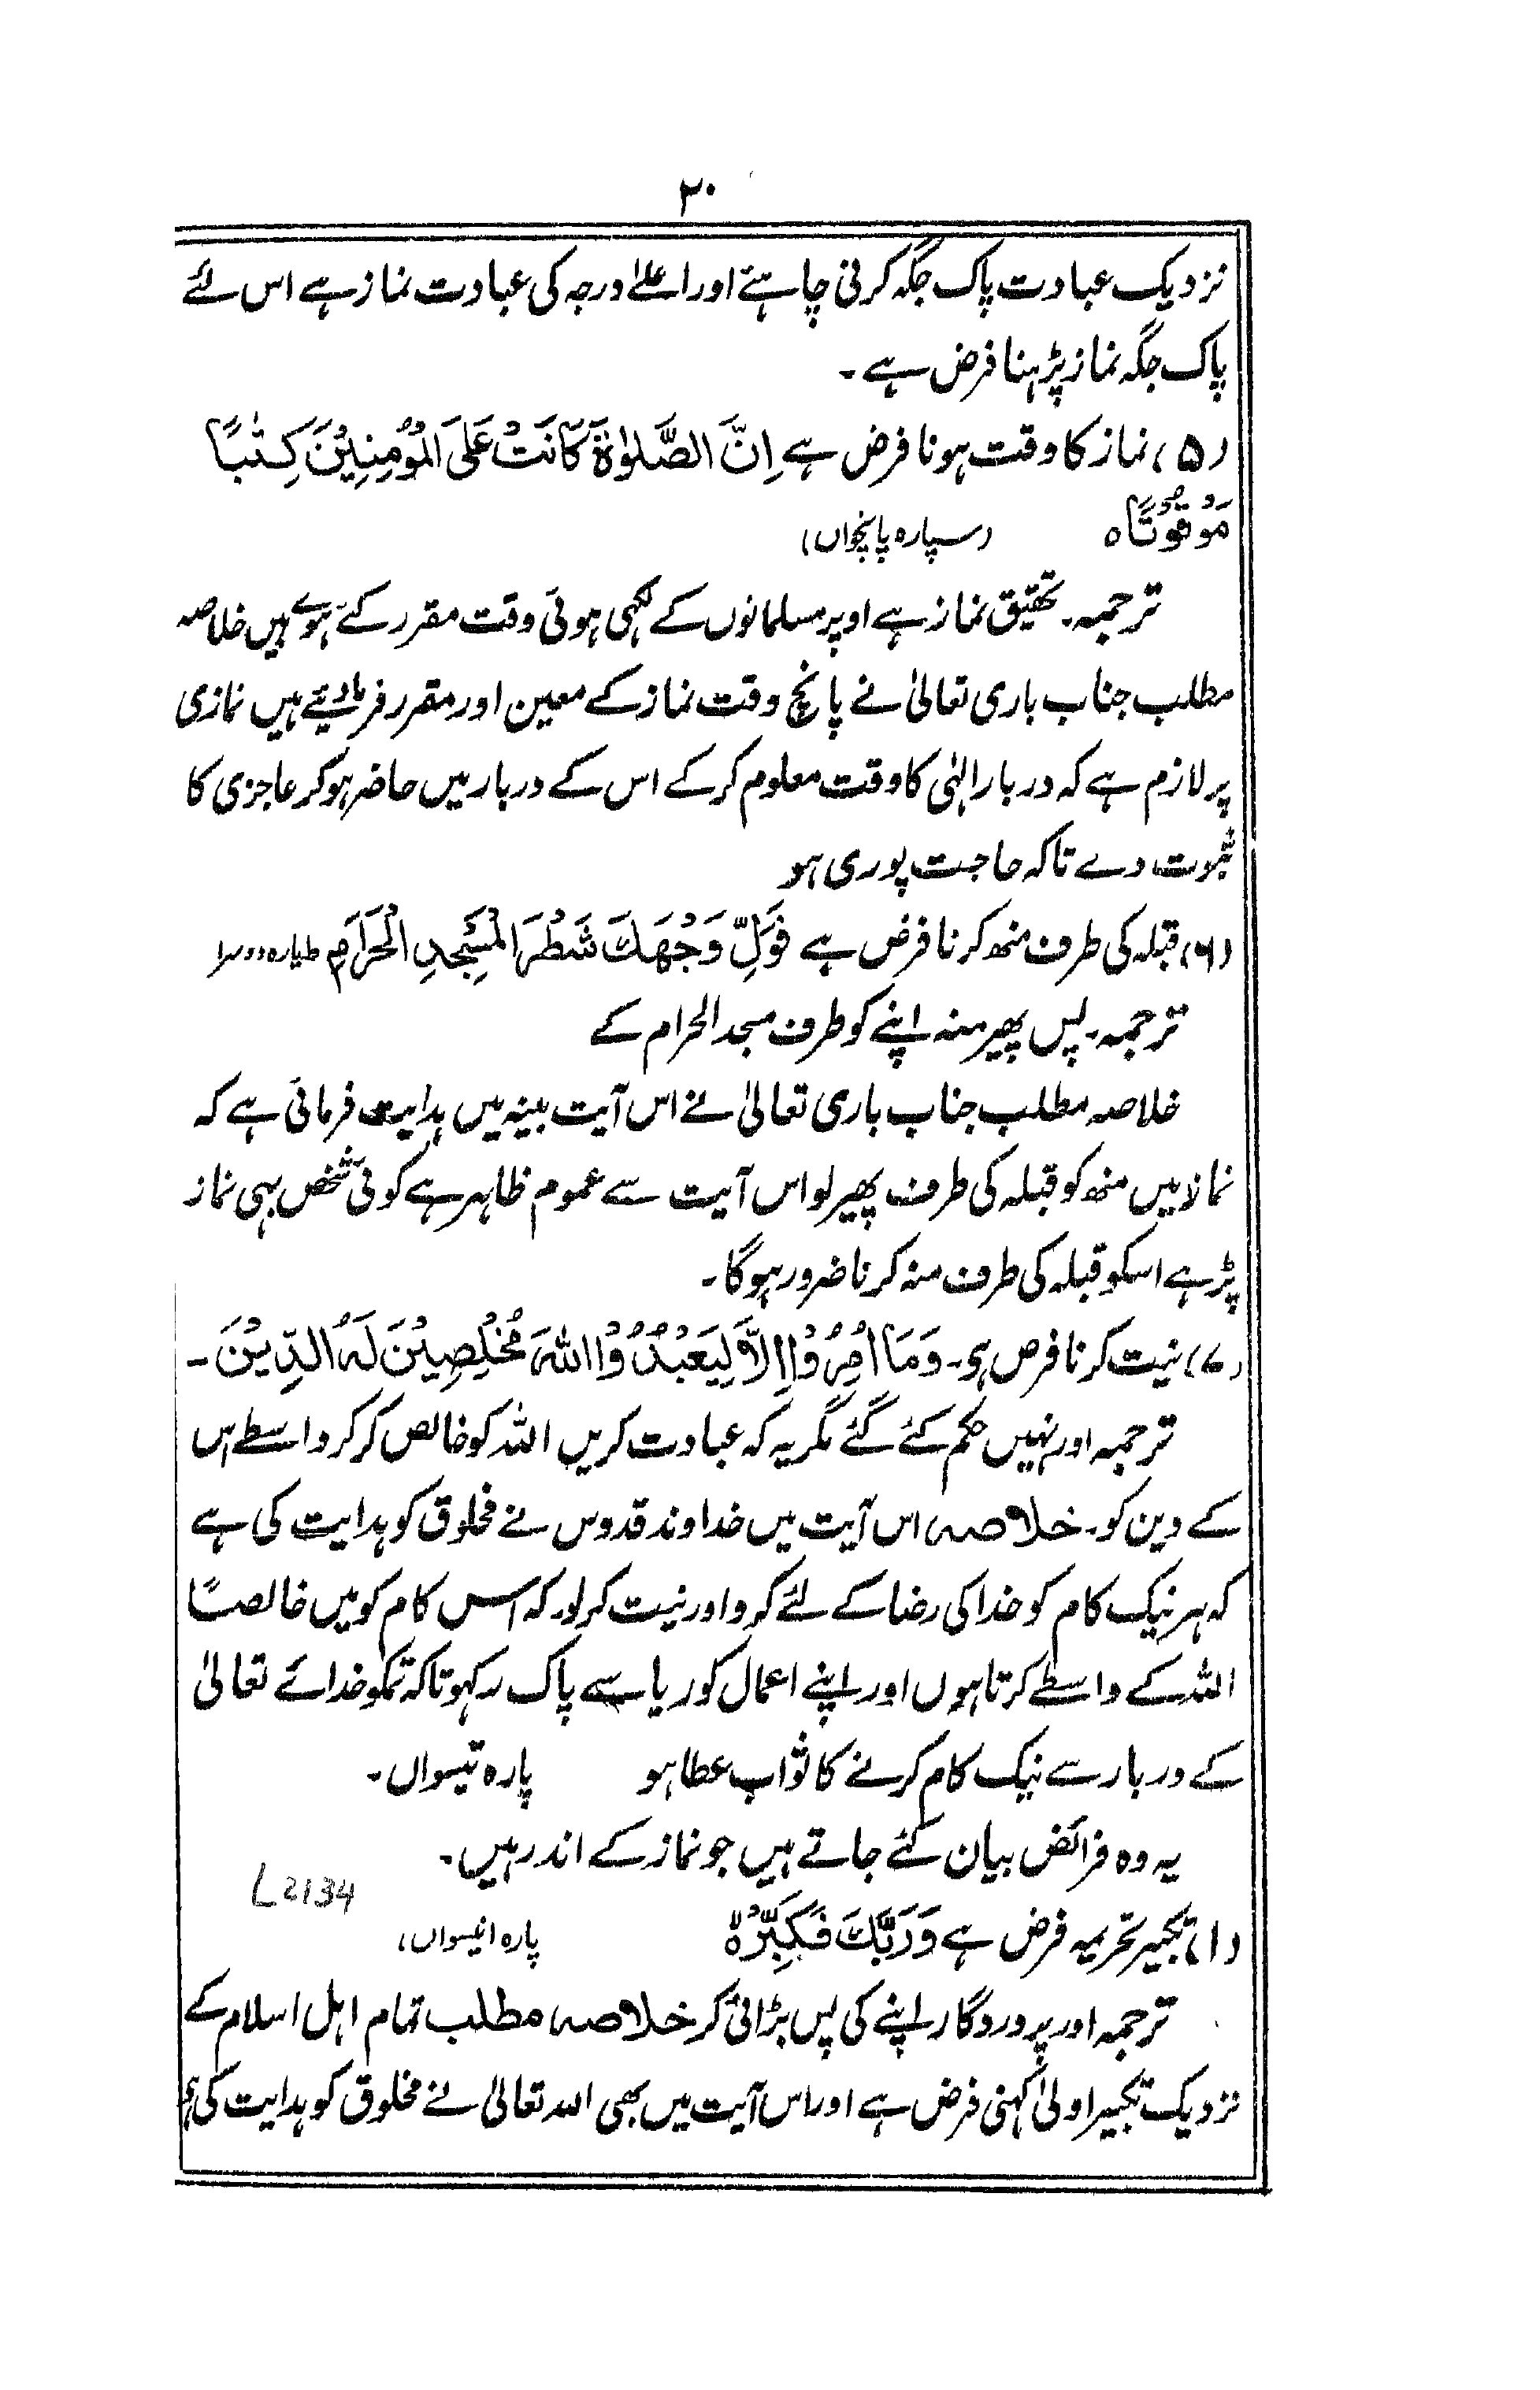 ۲۰
نزدیک عبادت پاک جگہ کرنی چاہئے اور اعلےٰ درجہ کی عبادت نماز ہے اس لئے
پاک جگہ نماز پڑہنا فرض ہے ۔
(۵) نماز کا وقت ہونا فرض ہے اِنَّ الصَّلوٰۃَ کَانَتْ عَلَی الْمُؤْمِنِیْنَ کِتٰبًا
مَوْقُوْتًا ہ (سپارہ پانچواں)
ترجمہ۔ تحقیق نماز ہے اوپر مسلمانوں کے لکہی ہوئی وقت مقرر کئے ہوے ہیں خلاصہ
مطلب جناب باری تعالیٰ نے پانچ وقت نماز کے معین اور مقرر فرمادیئے ہیں نمازی
پر لازم ہے کہ دربار الہٰی کا وقت معلوم کرکے اس کے دربار میں حاضر ہوکر عاجزی کا
ثبوت دے تاکہ حاجت پوری ہو
(۶) قبلہ کی طرف منھ کرنا فرض ہے فَوَلِّ وَجْھَکَ شَطْرَ الْمَسْجِدِ الْحَرَامِ
ترجمہ۔ پس پھیر منہ اپنے کو طرف مسجد الحرام کے
خلاصہ مطلب جناب باری تعالیٰ نے اس آیت بینہ میں ہدایت فرمائی ہے کہ
نماز میں منھ کو قبلہ کی طرف پھیر لو اس آیت سے عموم ظاہر ہے کوئی شخص بہی نماز
پڑہے اسکو قبلہ کی طرف منہ کرنا ضرور ہوگا۔
(۷) نیت کرنا فرض ہی۔ وَمَا اُمِرُوْا اِلَّا لِیَعْبُدُوْا اللّٰہَ مُخْلِصِیْنَ لَہُ الدِّیْنَ ۔
ترجمہ اور نہیں حکم کئے گئے مگر یہ کہ عبادت کریں اللہ کو خالص کرکر واسطے اس
کے دین کو۔ خلاصہ اس آیت میں خداوند قدوس نے مخلوق کو ہدایت کی ہے
کہ ہر نیک کام کو خدا کی رضا کے لئے کرو اور نیت کرلو۔ کہ اس کام کو میں خالصتًا
اللہ کے واسطے کرتا ہوں اور اپنے اعمال کو ریا سے پاک رکہو تاکہ تمکو خدائے تعالیٰ
کے دربار سے نیک کام کرنے کا ثواب عطا ہو پارہ تیسواں۔
یہ وہ فرائض بیان کئے جاتے ہیں جو نماز کے اندر ہیں۔
L2134
(۱) تکبیر تحریمہ فرض ہے وَرَبَّکَ فَکَبِّرْہ پارہ انیسواں)
ترجمہ اور پروردگار اپنے کی پس بڑائی کر خلاصہ مطلب تمام اہل اسلام کے
نزدیک تکبیر اولیٰ کہنی فرض ہے اور اس آیت میں بھی اللہ تعالیٰ نے مخلوق کو ہدایت کی ہے